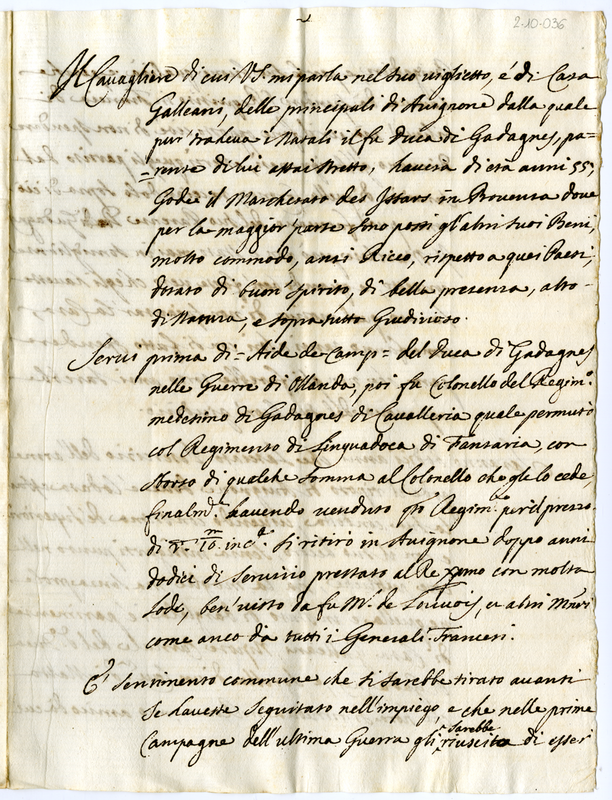 2-10-036
Il Cavagliere di cui VS. mi parla nel suo viglietto, é di Casa
Galleani, delle principali di Avignone dalla quale
pur' tradeva i Natali il fu Duca di Gadagnes, pa=
=rente di lui assai stretto, haverà di età anni 55,
Gode il Marchesato des Issars in Provenza dove
per la maggior' parte sono posti gl'altri suoi Beni,
molto commodo, anzi Ricco, rispetto a quei Paesi,
dotato di buon' spirito, di bella presenza, alto
di Statura, e sopra tutto Giudizioso.
Servì prima di = Aide de Camp = del Duca di Gadagnes
nelle Guerre di Ollanda, poi fu Colonello del Regim.º
medesimo di Gadagnes di Cavalleria quale permutò
col Regimento di Linguadoca di Fantaria, con
sborso di qualche somma al Colonello che gle lo cede,
finalm.e havendo venduto q.to Regim.º per il prezzo
di 10 in c.a si ritirò in Avignone doppo anni
dodici di servizio prestato al Re Xpmo con molta
lode, ben' visto da fu M.r de Louvois, et altri M'ri
come anco da tutti i Generali Francesi.
E' sentimento commune che si sarebbe tirato avanti
se havesse seguitato nell'impiego e che nelle prime
Campagne dell'ultima Guerra gli sarebbe riuscito di esser